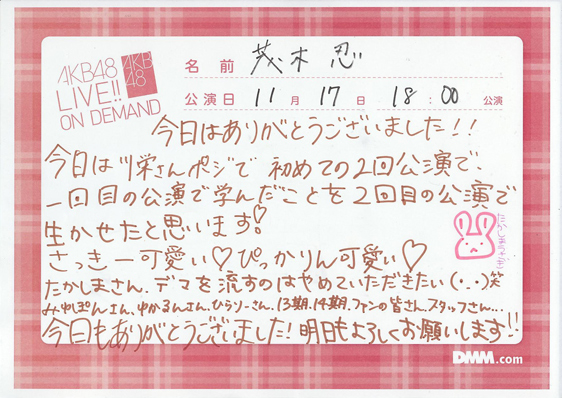 AKB48
LIVE!!
ON DEMAND
AKB
48
名前 茂木 忍
公演日 11月17日 18:00公演
今日はありがとうございました!!
今日は栄さんポジで初めての2回公演で、
一回目の公演で学んだことを2回目の公演で
生かせたと思います♡
さっきー可愛い♡ぴっかりん可愛い♡
たかしまさん、デマを流すのはやめていただきたい(・_・)笑
みゆぽんさん、ゆかるんさん、ひらりーさん、13期、14期、ファンの皆さん、スタッフさん...
今日もありがとうございました!明日もよろしくお願いします!!
DMM.com